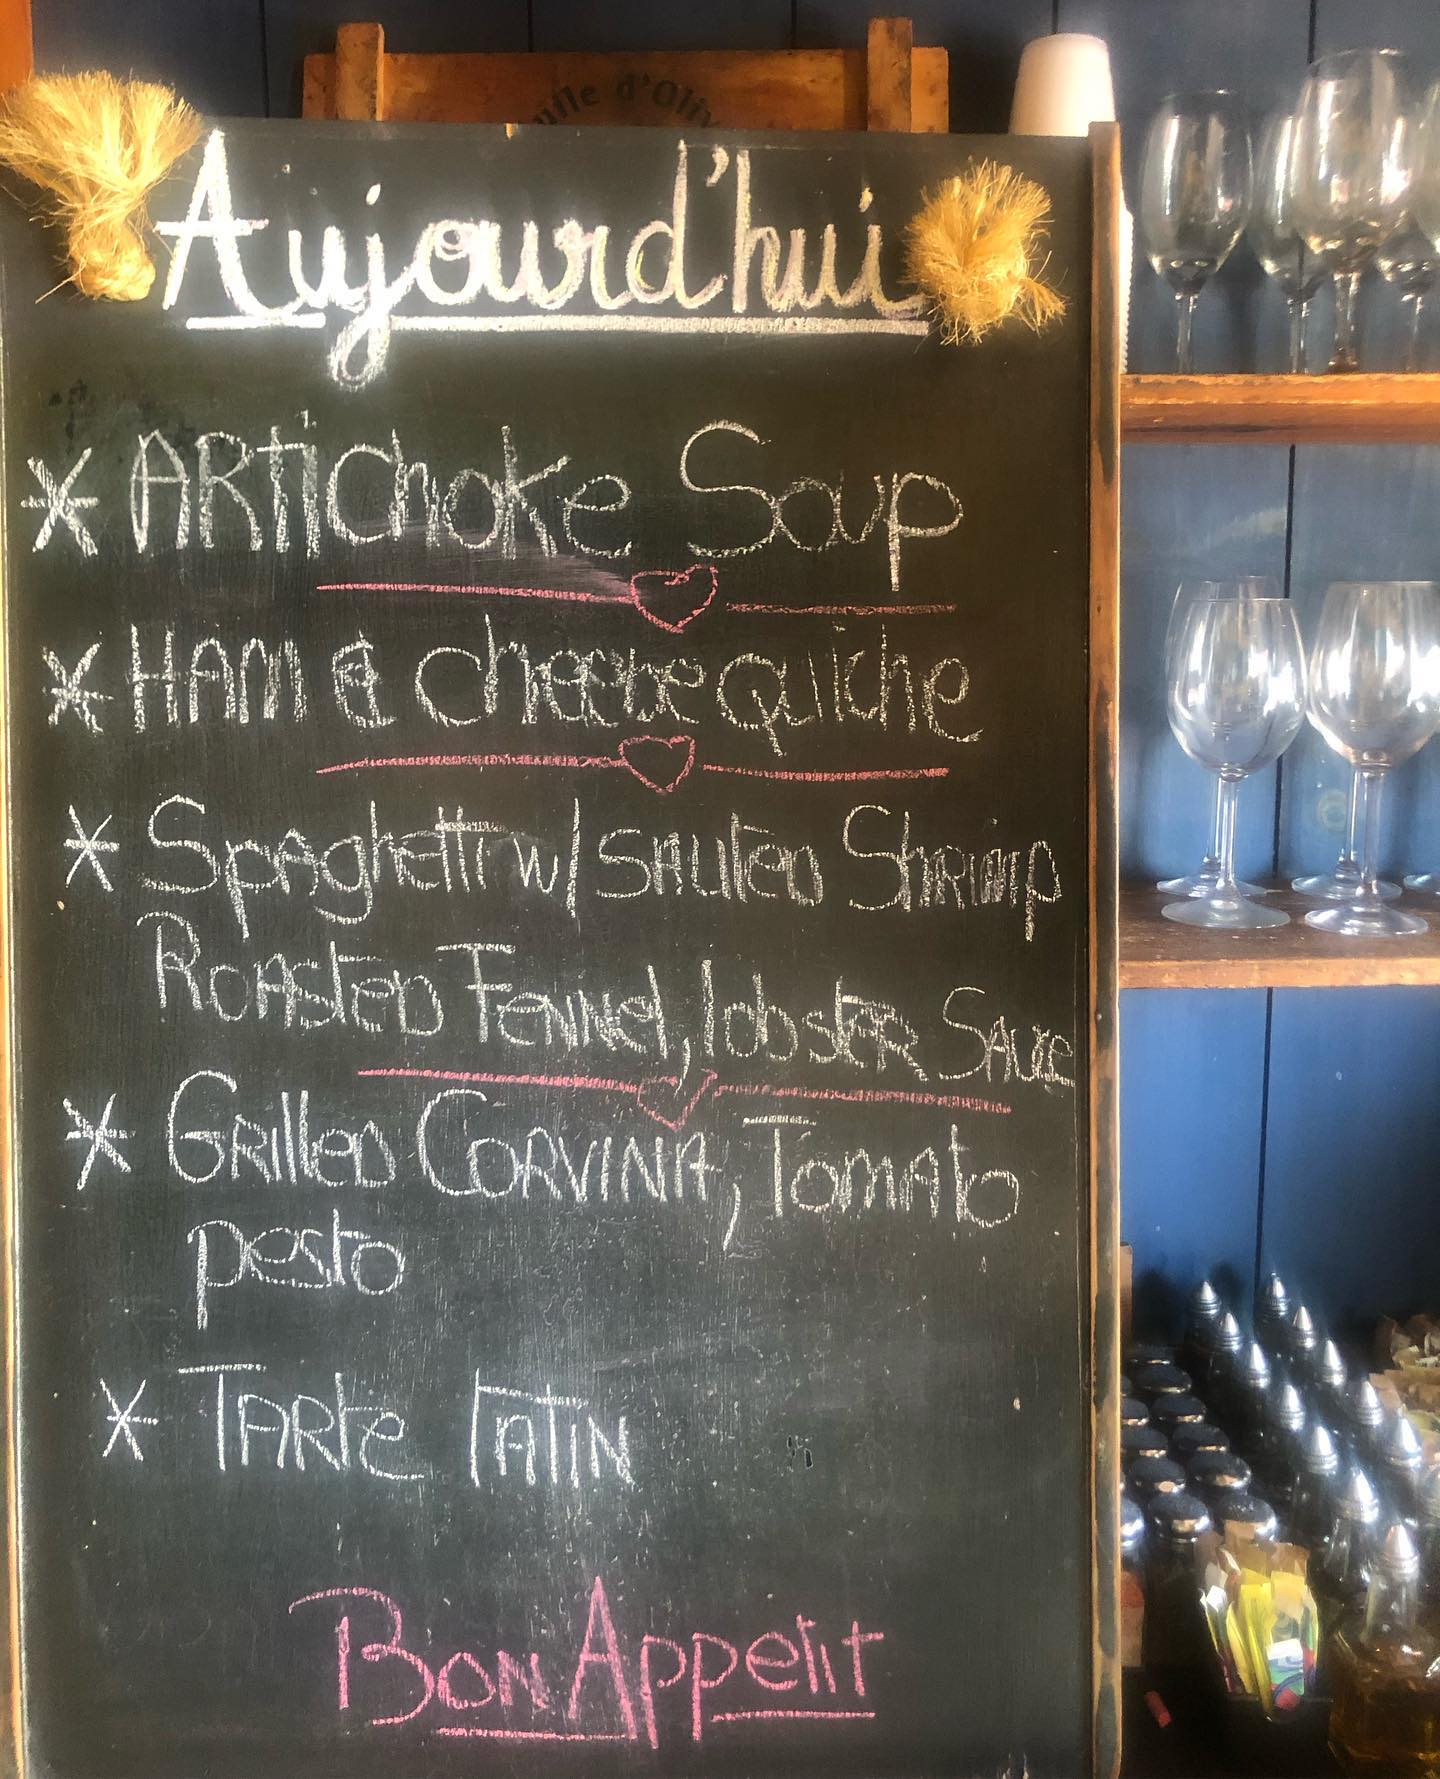 uile d'Oliv
Aujourd'hui
* Artichoke Soup
* Ham & cheese quiche
* Spaghetti w/ sauted Shrimp
Roasted Fennel, lobster Sauce
* Grilled Corvina, Tomato
pesto
* Tarte Tatin
Bon Appetit